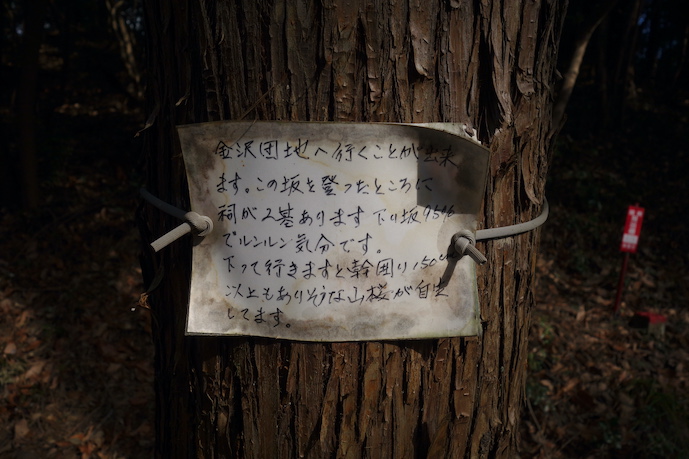 金沢団地へ行くことが出来
ます。この坂を登ったところに
祠が2基あります下り坂95%
でルンルン気分です。
下って行きますと幹囲り150
以上もありそうな山桜が自生
してます。